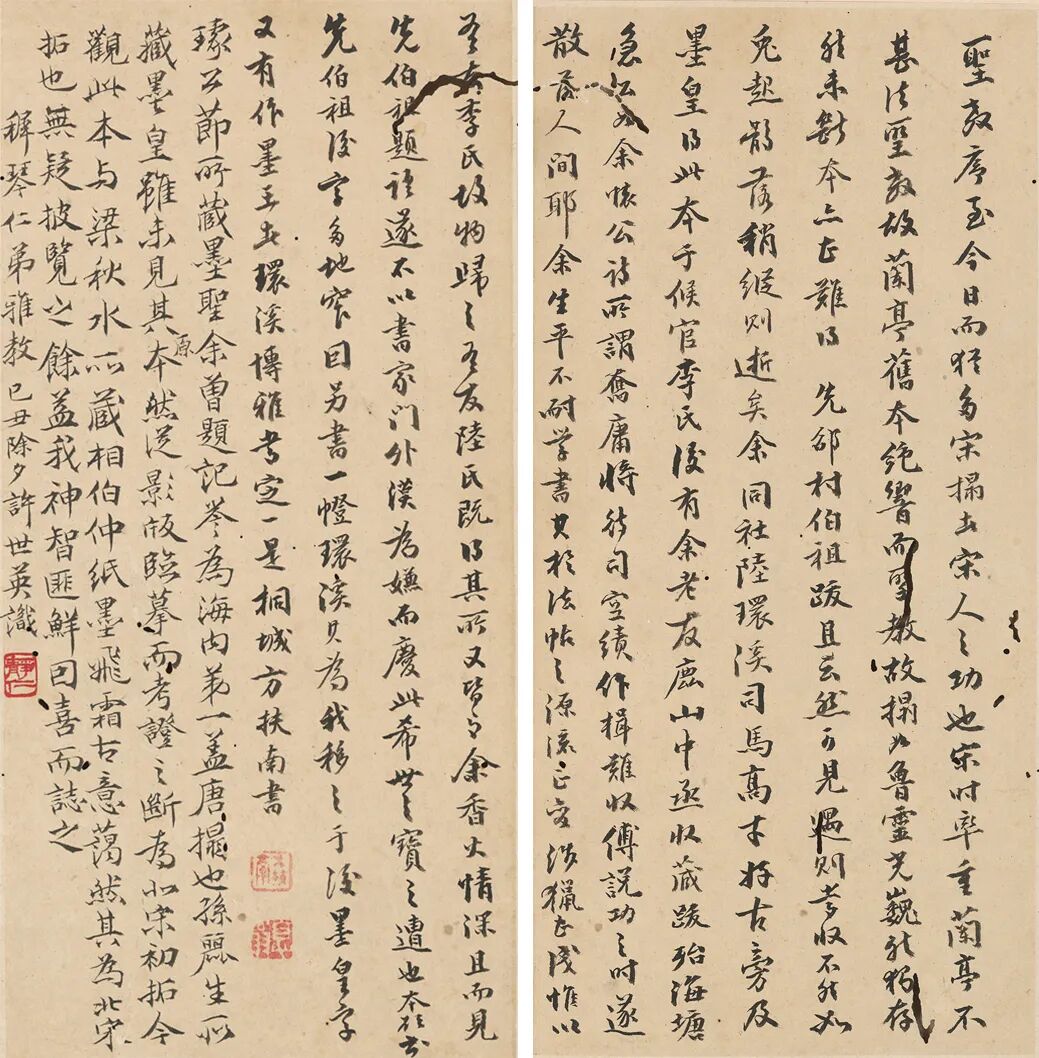 聖教序至今日而猶多宋搨者宋人之功也宋时率重蘭亭不
甚法聖教故蘭亭舊本絶響而聖教故搨如魯靈光巍然獨存
然未斷本亦甚難得 先邵村伯祖跋且云然可見遇則當收不然如
兔起鶻落稍縱則逝矣余同社陸環溪司馬高才好古旁及
墨皇得此本于候官李氏後有余老友鹿山中丞收藏跋殆海塘
急公如余懷公詩所謂奪庸將作司空績作楫難收傅説功之时遂
散落人間耶余生平不耐学書其於法帖之源流正变涉獵甚淺惟以
吾友李氏故物歸之吾友陸氏既得其所又皆与余香火情深且而見
先伯祖題語遂不以書家门外漢為嫌而慶此希世之寶之遭也本松
先伯祖後字多地窄因另書一幀環溪只為我移之于後墨皇字
又有作墨王者環溪博雅考定一是桐城方扶南書
琢公節所藏墨聖余曾題記参為海内第一盖唐搨也孫麗生所
藏墨皇雖未見其原本然從影版臨摹而考證之斷為北宋初拓今
觀此本与梁秋水所藏相伯仲紙墨飛霜古意藹然其為北宋
拓也無疑披覽之餘益我神智匪鮮因喜而誌之
穉琴仁弟雅教 己丑除夕許世英識
静仁